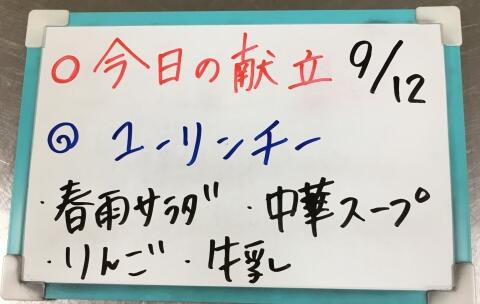 ○今日の献立 9/12
◎ユーリンチー
・春雨サラダ ・中華スープ
・りんご ・牛乳